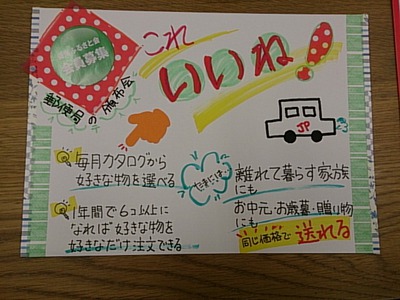 ふるさと会
会員募集
これ
いいね!
郵便局の頒布会
JP
毎月カタログから
好きな物を選べる
1年間で6コ以上に
なれば好きな物を
好きなだけ注文できる
離れて暮らす家族
にも
お中元・お歳暮・贈り物
にも
同じ価格で送れる